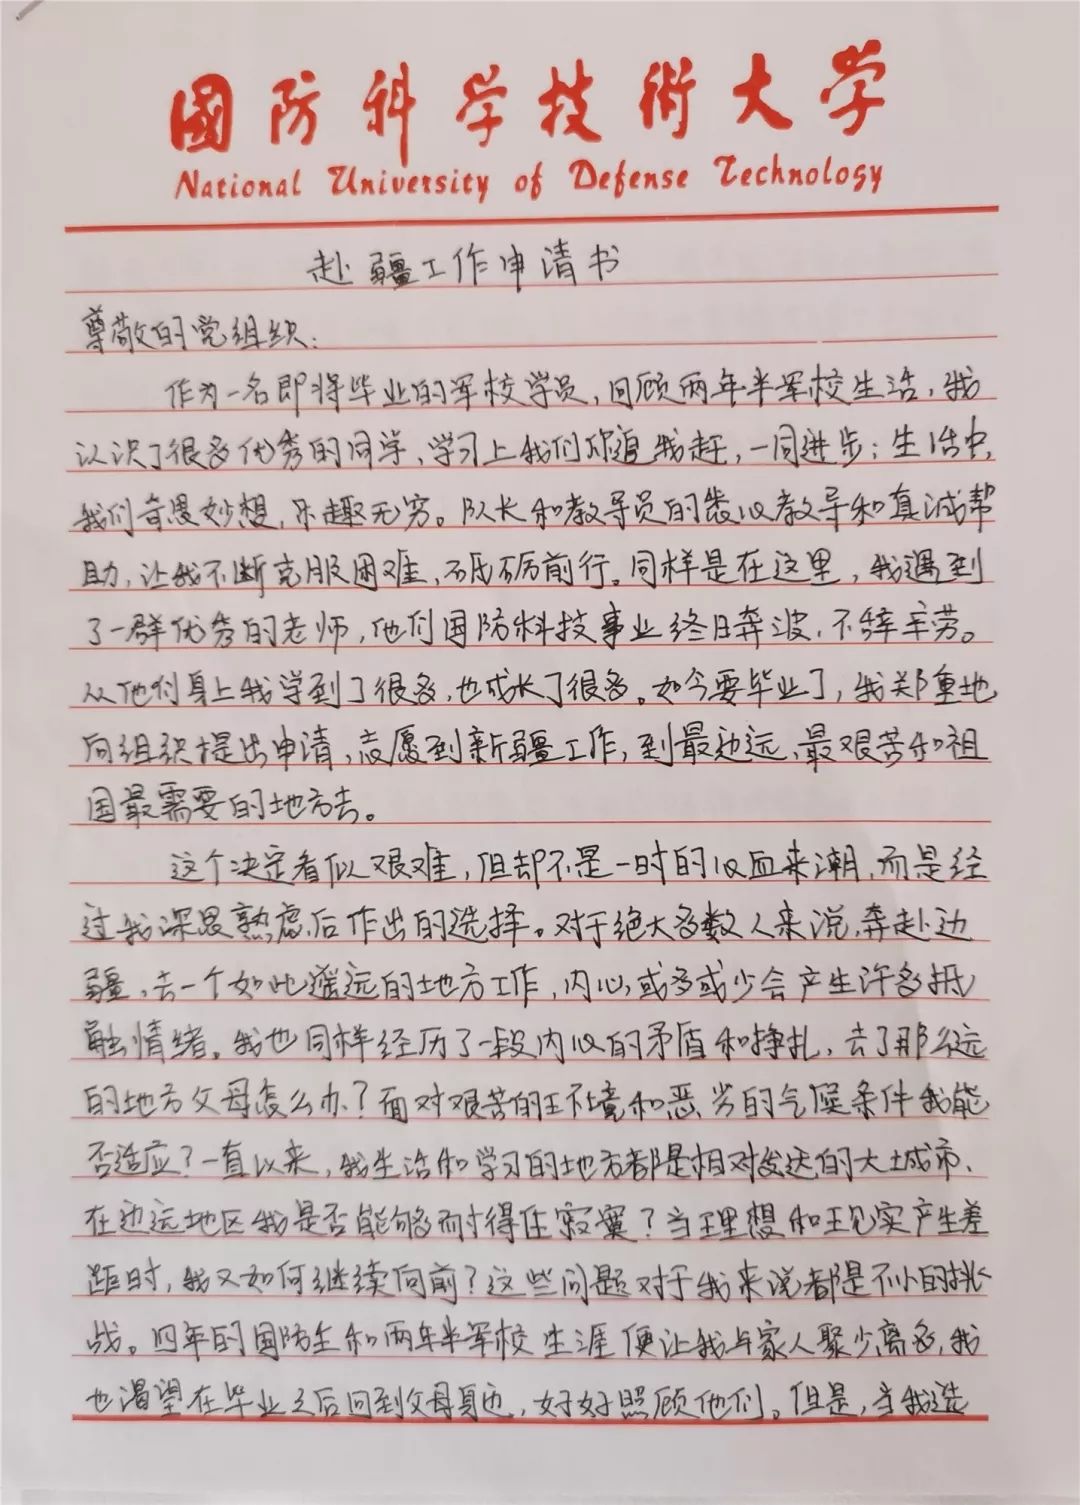 國防科学技術大学
National University of Defense Technology
赴疆工作申请书
尊敬的党组织：
作为一名即将毕业的军校学员，回顾两年半军校生活，我
认识了很多优秀的同学，学习上我们你追我赶，一同进步；生活中，
我们奇思妙想，乐趣无穷。队长和教导员的悉心教导和真诚帮
助，让我不断克服困难，砥砺前行。同样是在这里，我遇到
了一群优秀的老师，他们国防科技事业终日奔波，不辞辛劳。
从他们身上我学到了很多，也成长了很多。如今要毕业了，我郑重地
向组织提出申请，志愿到新疆工作，到最边远、最艰苦和祖
国最需要的地方去。
这个决定看似艰难，但却不是一时的心血来潮，而是经
过我深思熟虑后作出的选择。对于绝大多数人来说，奔赴边
疆，去一个如此遥远的地方工作，内心或多或少会产生许多抵
触情绪。我也同样经历了一段内心的矛盾和挣扎，去了那么远
的地方父母怎么办？面对艰苦的环境和恶劣的气候条件我能
否适应？一直以来，我生活和学习的地方都是相对发达的大城市，
在边远地区我是否能够耐得住寂寞？当理想和现实产生差
距时，我又如何继续向前？这些问题对于我来说都是不小的挑
战。四年的国防生和两年半军校生涯便让我与家人聚少离多，我
也渴望在毕业之后回到父母身边，好好照顾他们。但是，当我选